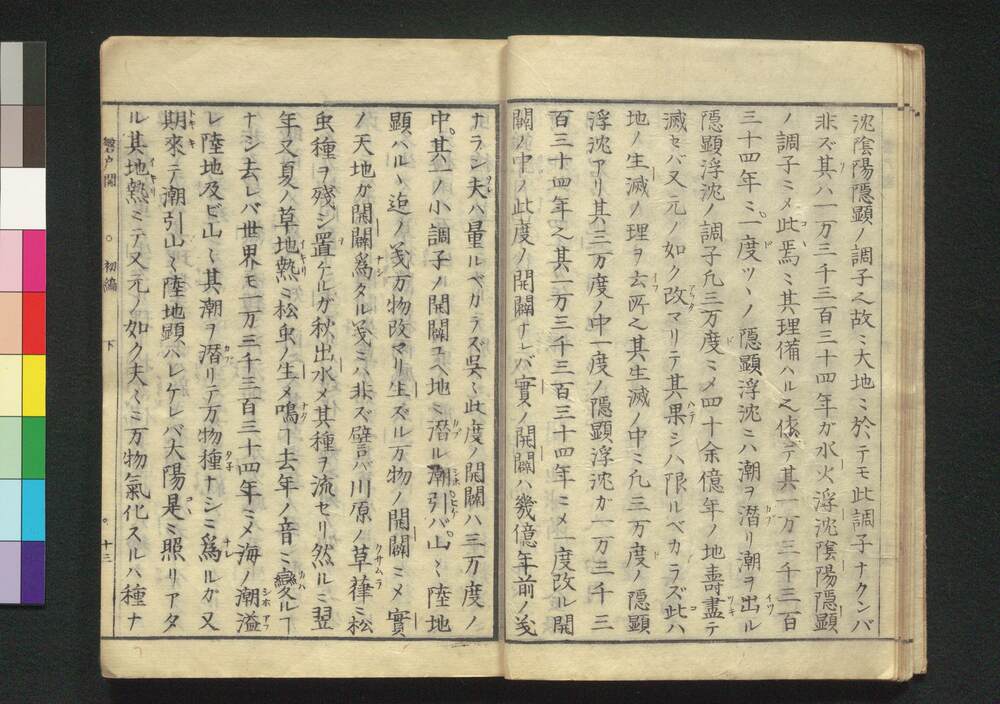 沈陰陽隱顯ノ調子之故ミ大地ミ於テモ此調子ナクンバ
非ズ其ハ一万三千三百三十四年ガ水火浮沈陰陽隱顯
ノ調子ミメ此焉ミ其理備ハル之依テ其一万三千三百
三十四年ミ一度ツヽノ隱顯浮沈ミハ潮ヲ潜リ潮ヲ出ル
隱顯浮沈ノ調子凡三万度ミメ四十余億年ノ地壽盡テ
滅セバ又元ノ如ク改マリテ其果シハ限ルベカラズ此ハ
地ノ生滅ノ理ヲ云所之其生滅ノ中ミ凡三万度ノ隱顯
浮沈アリ其三万度ノ中一度ノ隱顯浮沈ガ一万三千三
百三十四年之其一万三千三百三十四年ミメ一度改ル開
闢ノ中ノ此度ノ開闢ナレバ實ノ開闢ハ幾億年前ノ㕝
ナラン夫ハ量ルベカラズ呉ミ此度ノ開闢ハ三万度ノ
中其一ノ小調子ノ開闢ユヘ地ミ潜ル潮引バ山ミ陸地
顯ハルヽ迠ノ㕝万物改マリ生ズル万物ノ開闢ミメ實
ノ天地ガ開闢爲タル㕝ミハ非ズ譬バ川原ノ草葎ミ松
虫種ヲ殘シ置ケルガ秋出水メ其種ヲ流セリ然ルミ翌
年又夏ノ草地熱ミ松虫ノ生メ鳴ヿ去年ノ音ミ變ルヿ
ナシ去レバ世界モ一万三千三百三十四年ミメ海ノ潮溢
レ陸地及ビ山ミ其潮ヲ潜リテ万物種ナシミ爲ルガ又
期來テ潮引山ミ陸地顯ハレケレバ大陽是ミ照リアタ
ル其地熱ミテ又元ノ如ク夫ミミ万物氣化スルハ種ナ
磐戸開 ○ 初編 下 ○ 十三